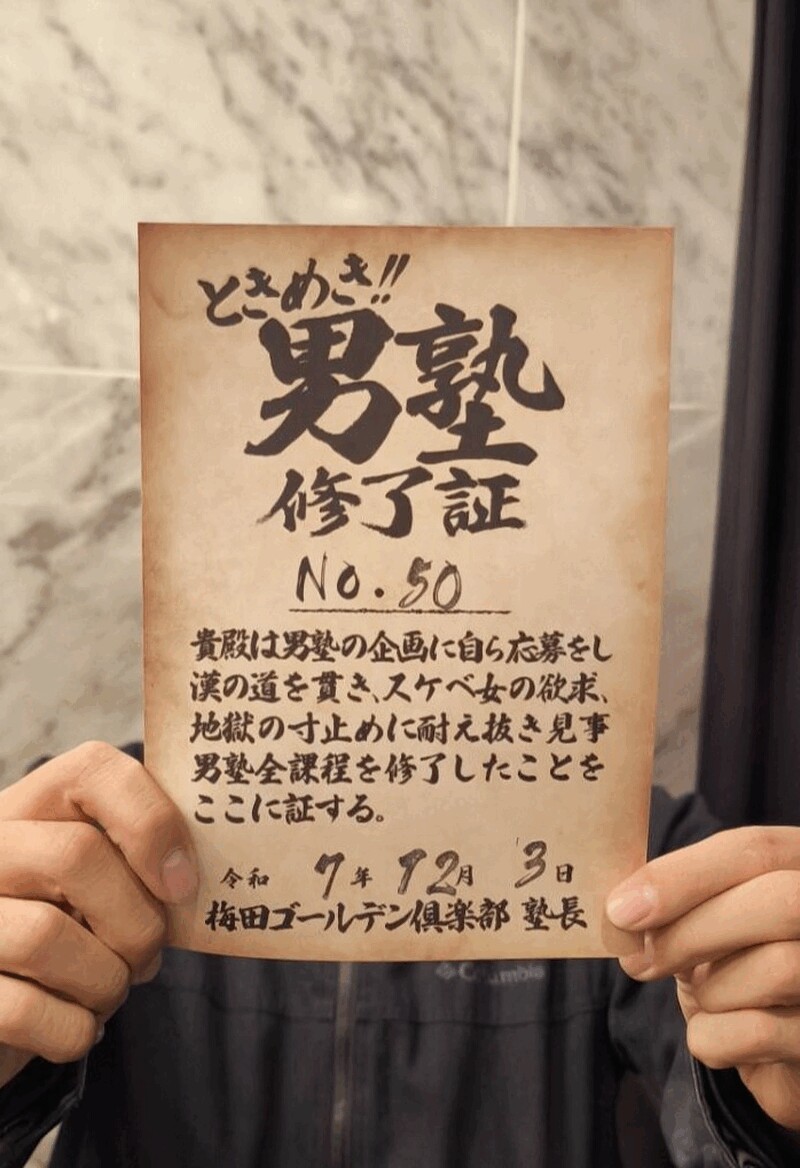 ときめき!!
男塾
修了証
No.50
貴殿は男塾の企画に自ら応募をし
漢の道を貫き、スケベ女の欲求、
地獄の寸止めに耐え抜き見事
男塾全課程を修了したことを
ここに証する。
令和 7年 12月 3日
梅田ゴールデン倶楽部 塾長
Columbia